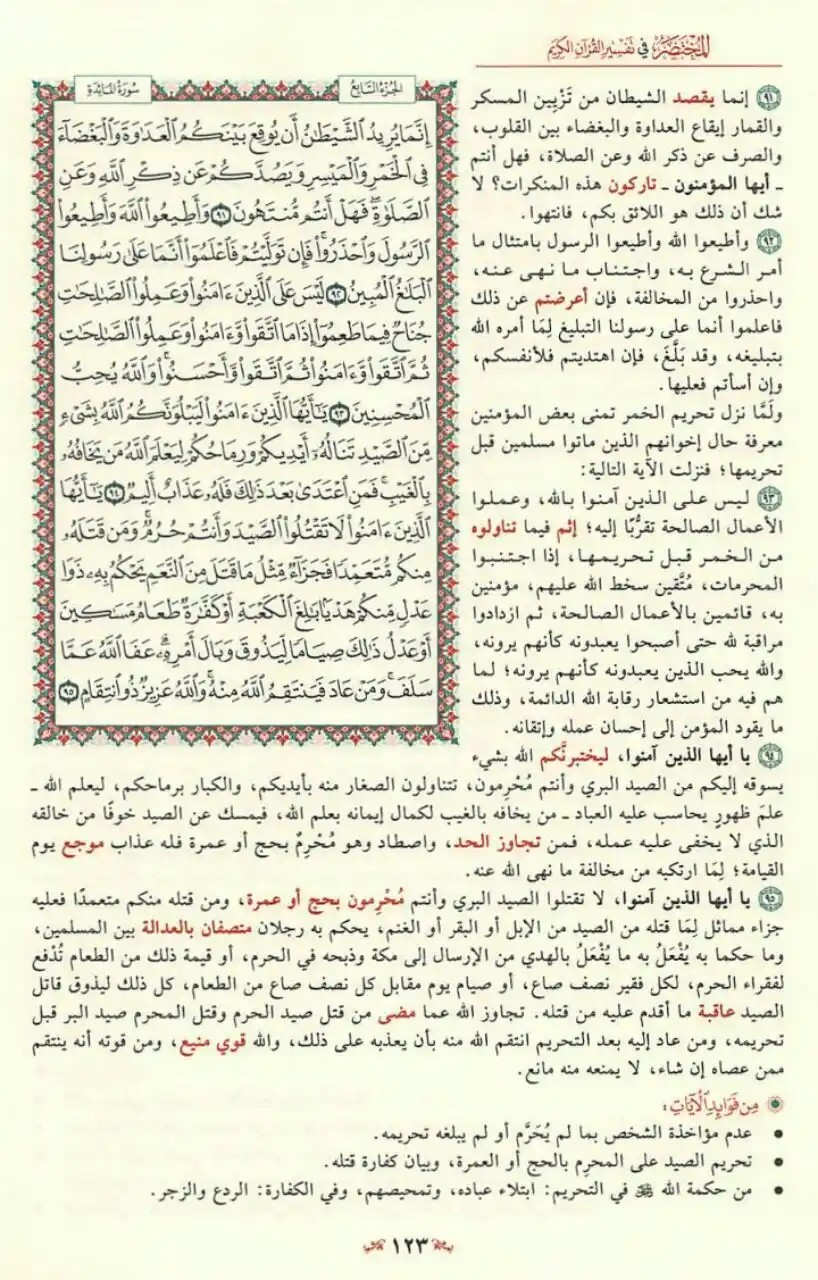 المختصر في تفسير القرآن الكريم
الجزء السابع
سورة المائدة
إِنَّمَا يُرِيدُ الشَّيْطَٰنُ أَن يُوقِعَ بَيْنَكُمُ الْعَدَاوَةَ وَالْبَغْضَآءَ
فِى الْخَمْرِ وَالْمَيْسِرِ وَيَصُدَّكُمْ عَن ذِكْرِ اللَّهِ وَعَنِ
الصَّلَوٰةِ ۖ فَهَلْ أَنتُم مُّنتَهُونَ ٩١ وَأَطِيعُوا۟ اللَّهَ وَأَطِيعُوا۟
الرَّسُولَ وَاحْذَرُوا۟ ۚ فَإِن تَوَلَّيْتُمْ فَاعْلَمُوٓا۟ أَنَّمَا عَلَىٰ رَسُولِنَا
الْبَلَٰغُ الْمُبِينُ ٩٢ لَيْسَ عَلَى الَّذِينَ ءَامَنُوا۟ وَعَمِلُوا۟ الصَّٰلِحَٰتِ
جُنَاحٌ فِيمَا طَعِمُوٓا۟ إِذَا مَا اتَّقَوا۟ وَّءَامَنُوا۟ وَعَمِلُوا۟ الصَّٰلِحَٰتِ
ثُمَّ اتَّقَوا۟ وَّءَامَنُوا۟ ثُمَّ اتَّقَوا۟ وَّأَحْسَنُوا۟ ۗ وَاللَّهُ يُحِبُّ
الْمُحْسِنِينَ ٩٣ يَٰٓأَيُّهَا الَّذِينَ ءَامَنُوا۟ لَيَبْلُوَنَّكُمُ اللَّهُ بِشَىْءٍ
مِّنَ الصَّيْدِ تَنَالُهُۥٓ أَيْدِيكُمْ وَرِمَاحُكُمْ لِيَعْلَمَ اللَّهُ مَن يَخَافُهُۥ
بِالْغَيْبِ ۚ فَمَنِ اعْتَدَىٰ بَعْدَ ذَٰلِكَ فَلَهُۥ عَذَابٌ أَلِيمٌ ٩٤ يَٰٓأَيُّهَا
الَّذِينَ ءَامَنُوا۟ لَا تَقْتُلُوا۟ الصَّيْدَ وَأَنتُمْ حُرُمٌ ۚ وَمَن قَتَلَهُۥ
مِنكُم مُّتَعَمِّدًا فَجَزَآءٌ مِّثْلُ مَا قَتَلَ مِنَ النَّعَمِ يَحْكُمُ بِهِۦ ذَوَا
عَدْلٍ مِّنكُمْ هَدْيًۢا بَٰلِغَ الْكَعْبَةِ أَوْ كَفَّٰرَةٌ طَعَامُ مَسَٰكِينَ
أَوْ عَدْلُ ذَٰلِكَ صِيَامًا لِّيَذُوقَ وَبَالَ أَمْرِهِۦ ۗ عَفَا اللَّهُ عَمَّا
سَلَفَ ۚ وَمَنْ عَادَ فَيَنتَقِمُ اللَّهُ مِنْهُ ۗ وَاللَّهُ عَزِيزٌ ذُو انتِقَامٍ ٩٥
٩١ إنما يقصد الشيطان من تَزْيين المسكر
والقمار إيقاع العداوة والبغضاء بين القلوب،
والصرف عن ذكر الله وعن الصلاة، فهل أنتم
ـ أيها المؤمنون ـ تاركون هذه المنكرات؟ لا
شك أن ذلك هو اللائق بكم، فانتهوا.
٩٢ وأطيعوا الله وأطيعوا الرسول بامتثال ما
أمر الشرع به، واجتناب ما نهى عنه،
واحذروا من المخالفة، فإن أعرضتم عن ذلك
فاعلموا أنما على رسولنا التبليغ لِمَا أمره الله
بتبليغه، وقد بَلَّغَ، فإن اهتديتم فلأنفسكم،
وإن أسأتم فعليها.
ولَمَّا نزل تحريم الخمر تمنى بعض المؤمنين
معرفة حال إخوانهم الذين ماتوا مسلمين قبل
تحريمها؛ فنزلت الآية التالية:
٩٣ ليس على الذين آمنوا بالله، وعملوا
الأعمال الصالحة تقرُّبًا إليه؛ إثم فيما تناولوه
من الخمر قبل تحريمها، إذا اجتنبوا
المحرمات، مُتَّقين سخط الله عليهم، مؤمنين
به، قائمين بالأعمال الصالحة، ثم ازدادوا
مراقبة لله حتى أصبحوا يعبدونه كأنهم يرونه،
والله يحب الذين يعبدونه كأنهم يرونه؛ لما
هم فيه من استشعار رقابة الله الدائمة، وذلك
ما يقود المؤمن إلى إحسان عمله وإتقانه.
٩٤ يا أيها الذين آمنوا، ليختبرنَّكم الله بشيء
يسوقه إليكم من الصيد البري وأنتم مُحْرِمون، تتناولون الصغار منه بأيديكم، والكبار برماحكم، ليعلم الله ـ
علمَ ظهورٍ يحاسب عليه العباد ـ من يخافه بالغيب لكمال إيمانه بعلم الله، فيمسك عن الصيد خوفًا من خالقه
الذي لا يخفى عليه عمله، فمن تجاوز الحد، واصطاد وهو مُحْرِمٌ بحج أو عمرة فله عذاب موجع يوم
القيامة؛ لِمَا ارتكبه من مخالفة ما نهى الله عنه.
٩٥ يا أيها الذين آمنوا، لا تقتلوا الصيد البري وأنتم مُحْرِمون بحج أو عمرة، ومن قتله منكم متعمدًا فعليه
جزاء مماثل لِمَا قتله من الصيد من الإبل أو البقر أو الغنم، يحكم به رجلان متصفان بالعدالة بين المسلمين،
وما حكما به يُفْعَلُ به ما يُفْعَلُ بالهدي من الإرسال إلى مكة وذبحه في الحرم، أو قيمة ذلك من الطعام تُدْفع
لفقراء الحرم، لكل فقير نصف صاع، أو صيام يوم مقابل كل نصف صاع من الطعام، كل ذلك ليذوق قاتل
الصيد عاقبة ما أقدم عليه من قتله. تجاوز الله عما مضى من قتل صيد الحرم وقتل المحرم صيد البر قبل
تحريمه، ومن عاد إليه بعد التحريم انتقم الله منه بأن يعذبه على ذلك، والله قوي منيع، ومن قوته أنه ينتقم
ممن عصاه إن شاء، لا يمنعه منه مانع.
مِن فَوَائِدِ الْآيَاتِ:
• عدم مؤاخذة الشخص بما لم يُحَرَّم أو لم يبلغه تحريمه.
• تحريم الصيد على المحرِم بالحج أو العمرة، وبيان كفارة قتله.
• من حكمة الله ﷻ في التحريم: ابتلاء عباده، وتمحيصهم، وفي الكفارة: الردع والزجر.
١٢٣